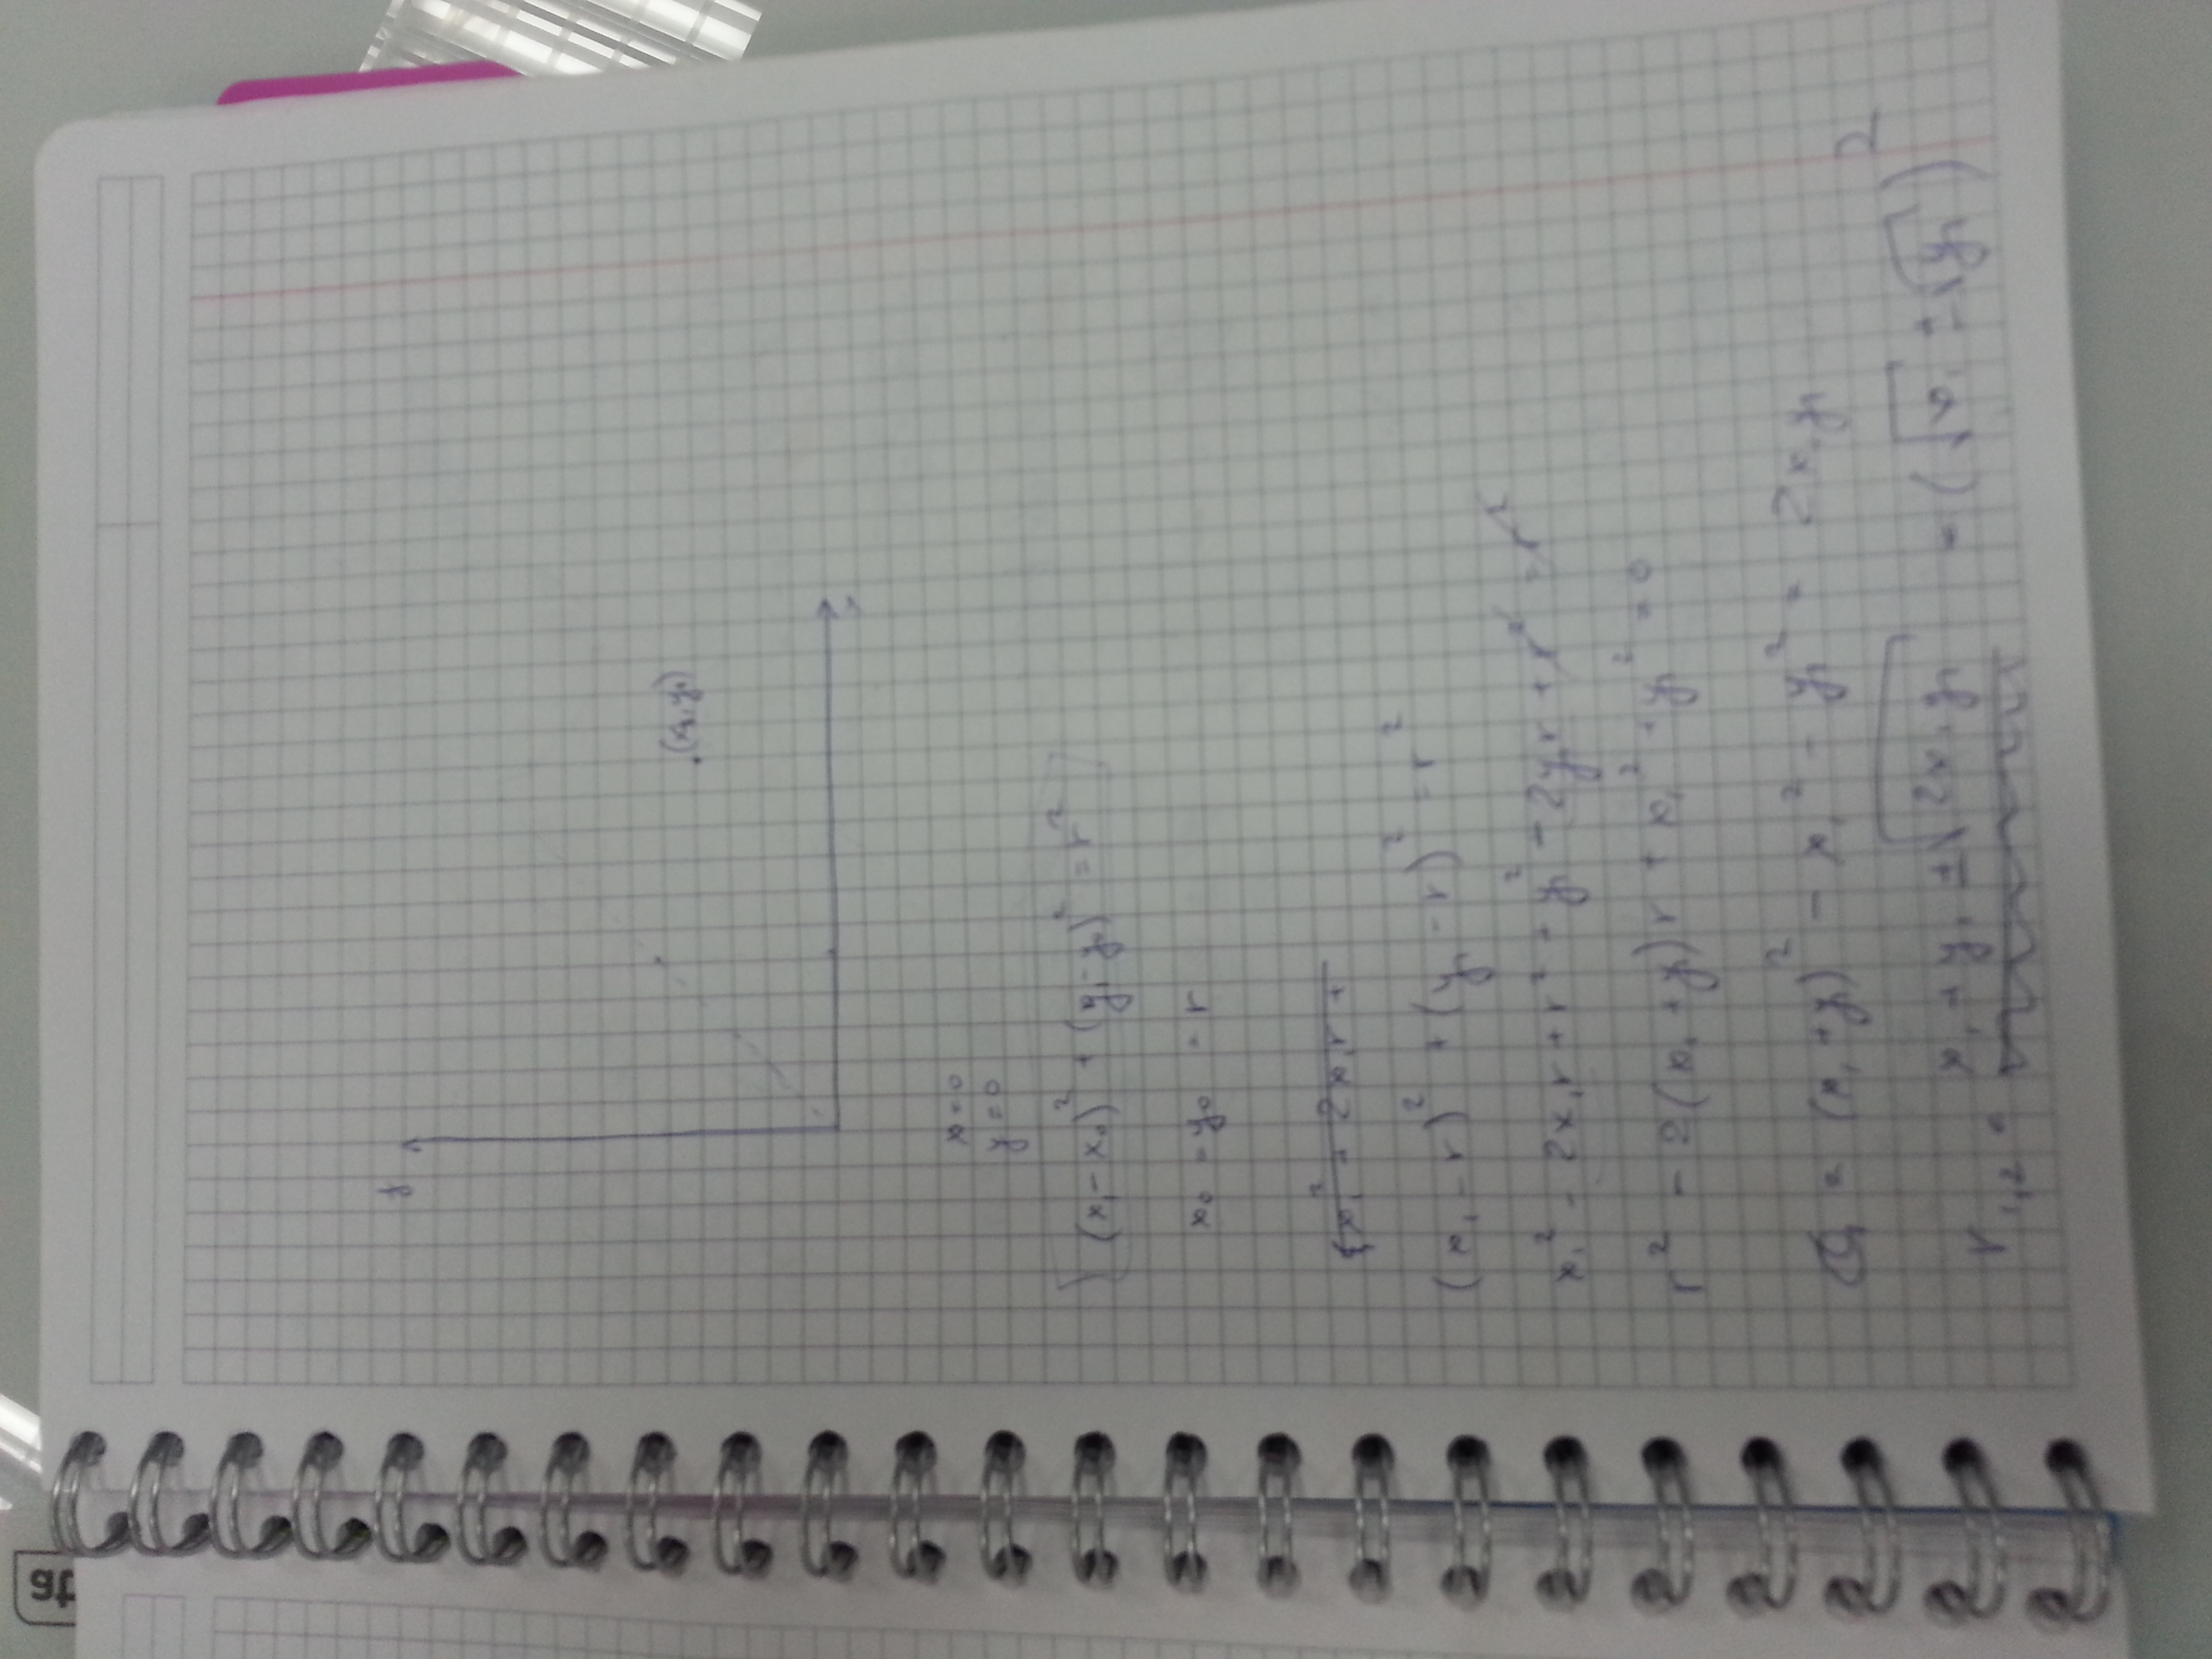 y
(x₁, y₁)
x
x = 0
y = 0
(x₁ - x₀)² + (y₁ - y₀)² = r²
x₀ = y₀ = r
x₁² + 2x₁r +
(x₁ - r)² + (y₁ - r)² = r²
x₁² - 2x₁r + r² + y₁² - 2y₁r + r² = r²
r² - 2(x₁ + y₁)r + x₁² + y₁² = 0
= (x₁ + y₁)² - x₁² - y₁² = 2x₁y₁
r₁,₂ = x₁ + y₁ ± √2x₁y₁ = (√x₁ ± √y₁)²